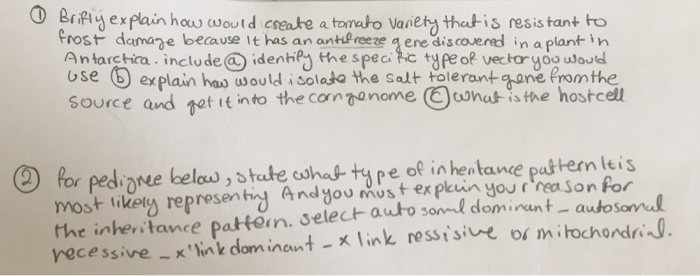 ① Brifly explain how would create a tomato variety that is resistant to
frost damage because It has an antifreeze gene discovered in a plant in
Antarctica. include ⓐ identify the specific type of vector you would
use ⓑ explain how would isolate the salt tolerant gene from the
source and get it into the corn genome ⓒ what is the host cell
② for pedigree below, state what type of inheritance pattern It is
most likely representing And you must explain your reason for
the inheritance pattern. select auto somal dominant - autosomal
recessive - x'link dominant - x link ressisive or mitochondrial.